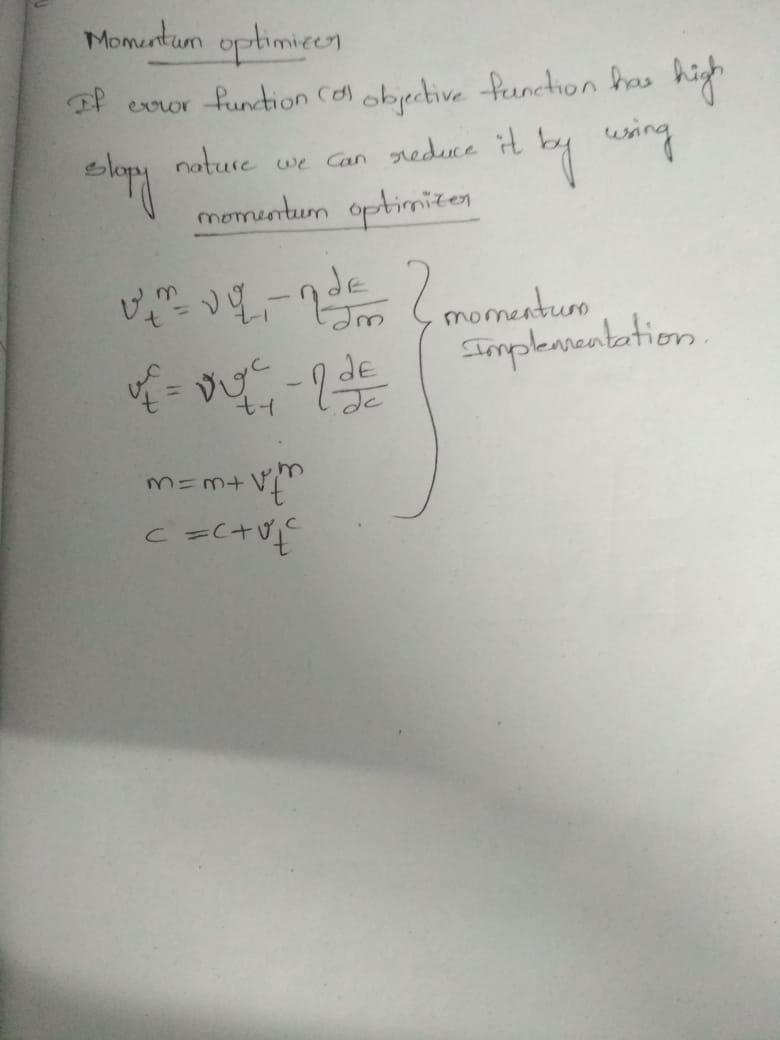 Momentum optimizer
If error function (or) objective function has high
slopy nature we can reduce it by using
momentum optimizer
v_t^m = γ v_{t-1} - η dE/dm
v_t^c = γ v_{t-1}^c - η dE/dc
momentum
Implementation.
m = m + v_t^m
c = c + v_t^c